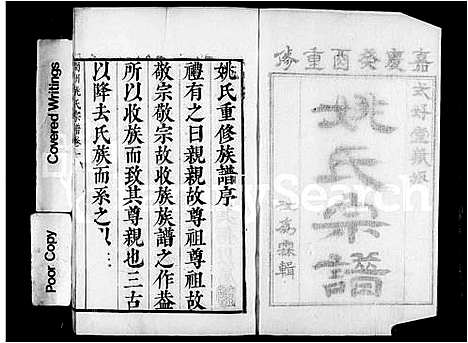 嘉慶癸酉重修
太好堂藏板
姚氏宗譜
爲霖輯
姚氏重修族譜序
禮有之曰親親故尊祖尊祖故
敬宗敬宗故收族族譜之作葢
所以收族而致其尊親也三古
以降去氏族而系之以
姚氏宗譜卷一
Covered Writings
Poor Copy